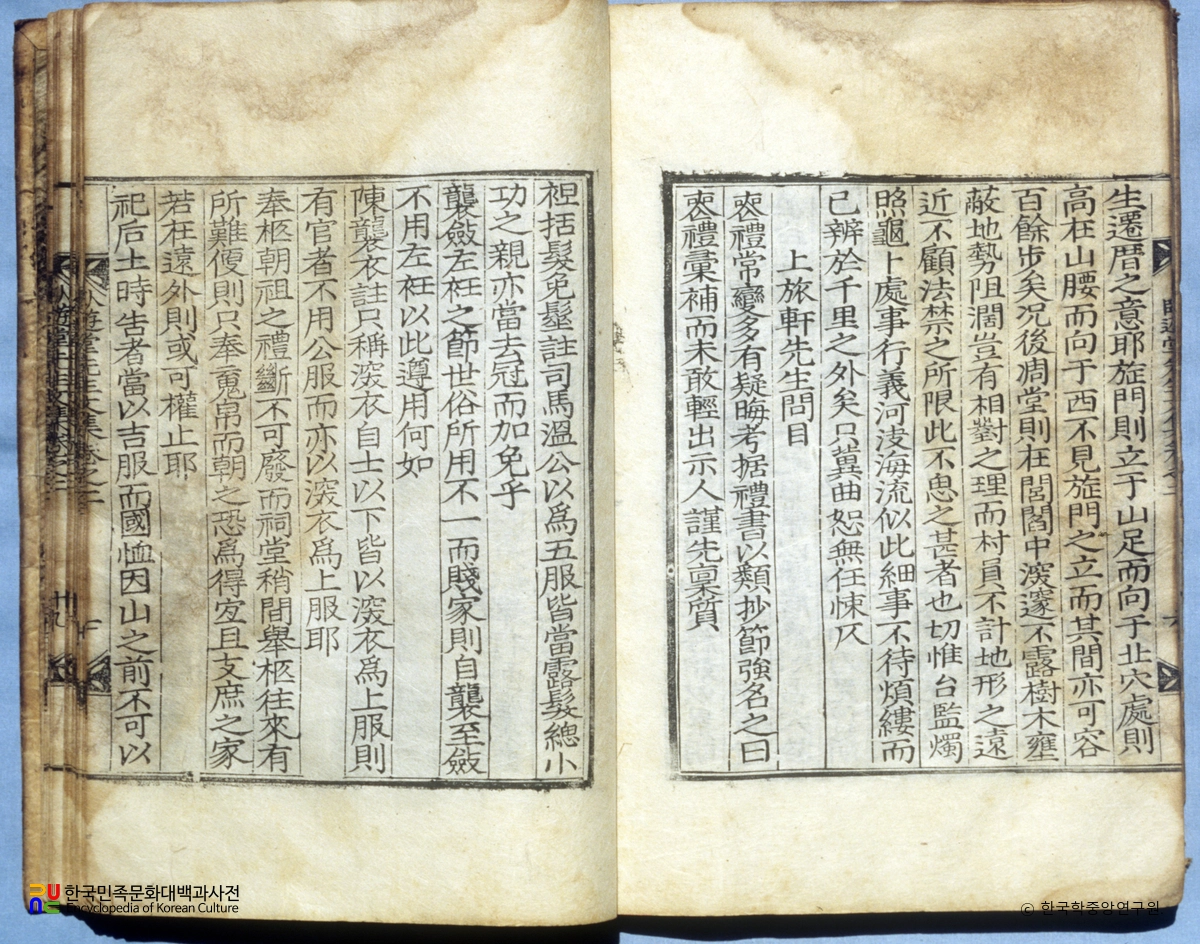 生遷厝之意耶旌門則立于山足而向于北穴處則
高在山腰而向于西不見旌門之立而其間亦可容
百餘步矣况後凋堂則在閭閻中深邃不露樹木壅
蔽地勢阻濶豈有相對之理而村員不計地形之遠
近不顧法禁之所限此不思之甚者也切惟台監燭
照龜卜處事行義河淩海流似此細事不待煩縷而
已辨於千里之外矣只冀曲恕無任悚仄
上旅軒先生問目
喪禮常變多有疑晦考据禮書以類抄節強名之曰
喪禮彙補而未敢輕出示人謹先稟質
袒括髮免髽註司馬溫公以爲五服皆當露髮緦小
功之親亦當去冠而加免乎
襲斂左衽之節世俗所用不一而賤家則自襲至斂
不用左衽以此遵用何如
陳襲衣註只稱深衣自士以下皆以深衣爲上服則
有官者不用公服而亦以深衣爲上服耶
奉柩朝祖之禮斷不可廢而祠堂稍間舉柩往來有
所難便則只奉䰟帛而朝之恐爲得宜且支庶之家
若在遠外則或可權止耶
祀后土時告者當以吉服而國恤因山之前不可以
堂先生文集卷之二
한국민족문화대백과사전
Encyclopedia of Korean Culture
© 한국학중앙연구원